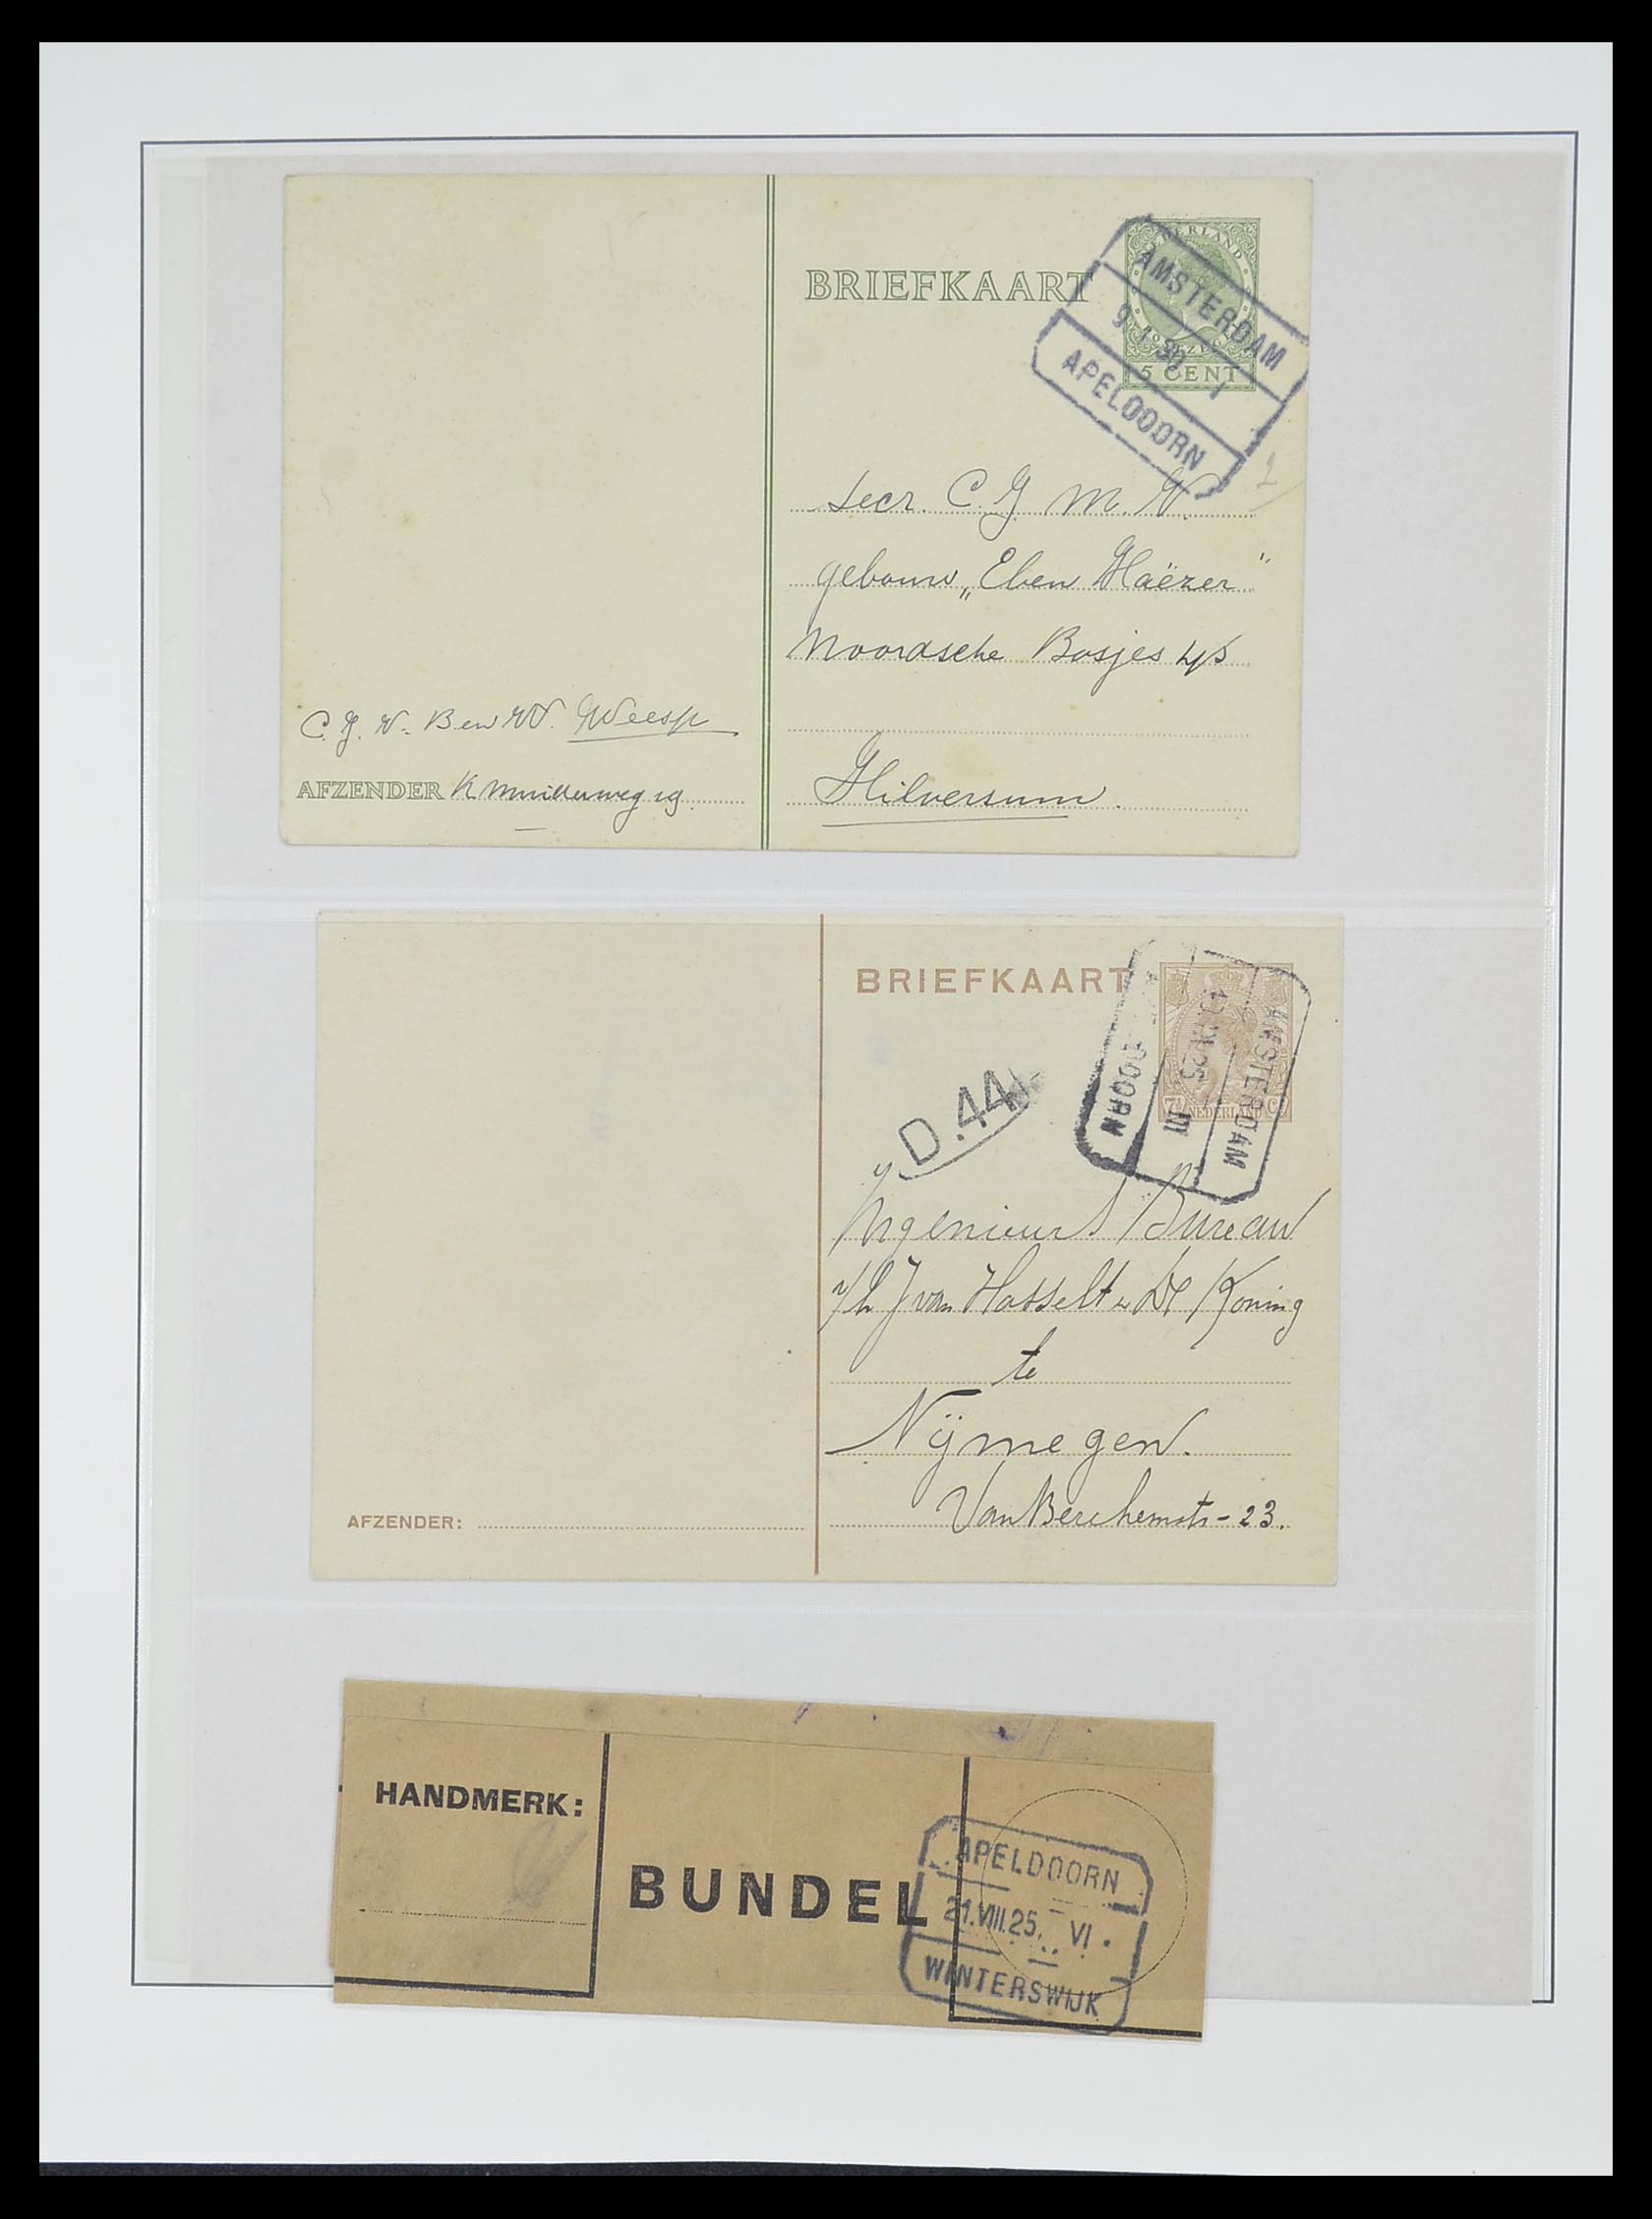 BRIEFKAART
NEDERLAND
5 CENT
AMSTERDAM
9 1 30 I
APELDOORN
2
Secr. C. J. M. V.
gebouw „Eben Haëzer"
Noordsche Bosjes 4/5
Hilversum.
C. J. V. Ben Weesp
AFZENDER K Muiderweg 19
BRIEFKAART
7½ NEDERLAND Ct
AMSTERDAM
25 III
DOORN
D.44
Ingenieurs Bureau
v/h J van Hasselt & De Koning
te
Nijmegen.
Van Berchemstr - 23.
AFZENDER:
HANDMERK:
BUNDEL
APELDOORN
21.VIII.25. VI
WINTERSWIJK